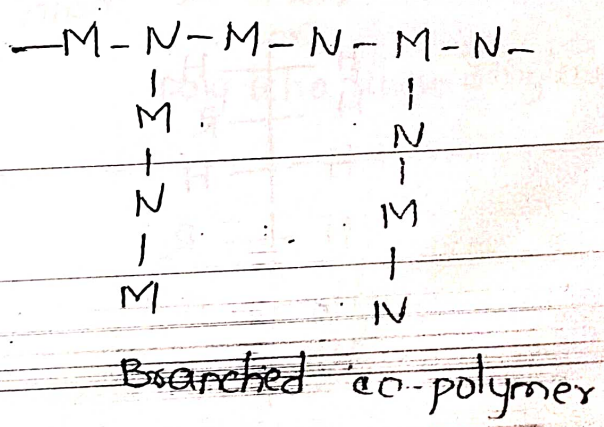 —M-N-M-N-M-N-
| |
M N
| |
N M
| |
M N
Branched co-polymer